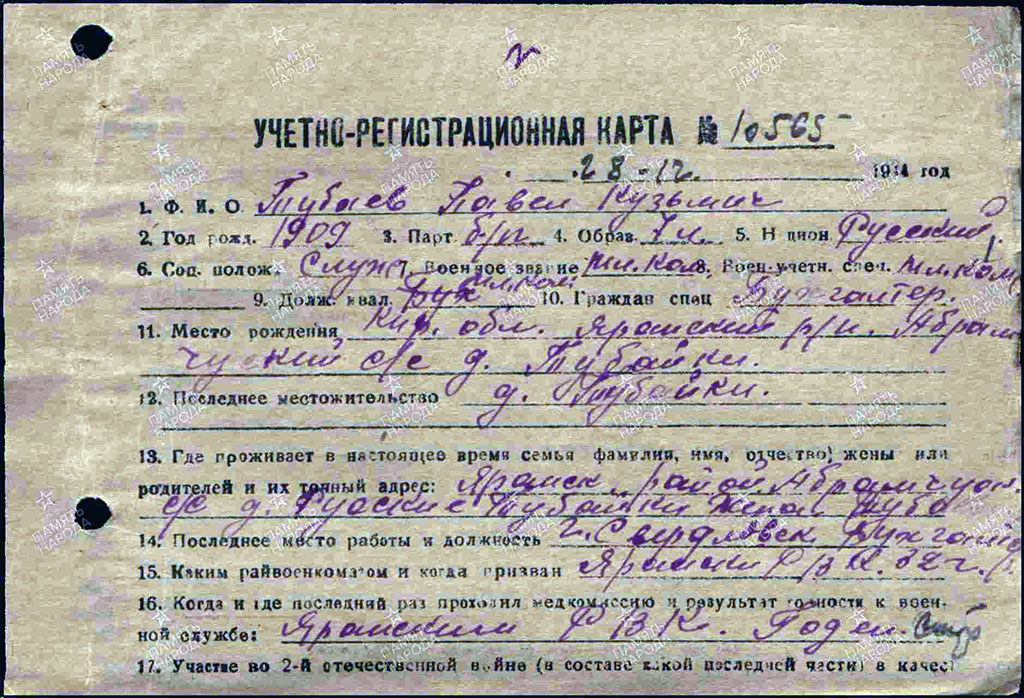 УЧЕТНО-РЕГИСТРАЦИОННАЯ КАРТА № 10565
28.12. 1944 год
1. Ф. И. О. Тубаев Павел Кузьмич
2. Год рожд. 1909 3. Парт б/п 4. Образ. 7 кл. 5. Н цион. Русский
6. Соц. полож. Служ. 7. Военное звание мл. ком 8. Воен-учетн. спец. мл. ком
9. Долж. квал. Бух мл. ком 10. Граждан спец Бухгалтер.
11. Место рождения Кир. обл. Яранский р/н. Абрам
чуский с/с д. Тубайки.
12. Последнее местожительство д. Тубайки.
13. Где проживает в настоящее время семья фамилия, имя, отчество) жены или
родителей и их точный адрес: Яранск. район Абрамчуск.
с/с д. Русские Тубайки жена
14. Последнее место работы и должность г. Свердловск Бухгал
15. Каким райвоенкоматом и когда призван Яранским
16. Когда и где последний раз проходил медкомиссию и результат годности к воен-
ной службе: Яранским РВК. Годен
17. Участие во 2-й отечественной войне (в составе какой последней части) в качест
ПАМЯТЬ НАРОДА